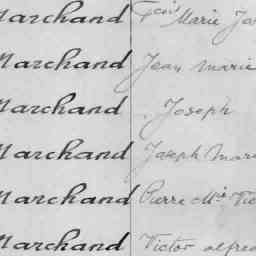 Marchand Marie Jos
Marchand Jean Marie
Marchand Joseph
Marchand Joseph Mari
Marchand Pierre Mie Vic
Marchand Victor alfred